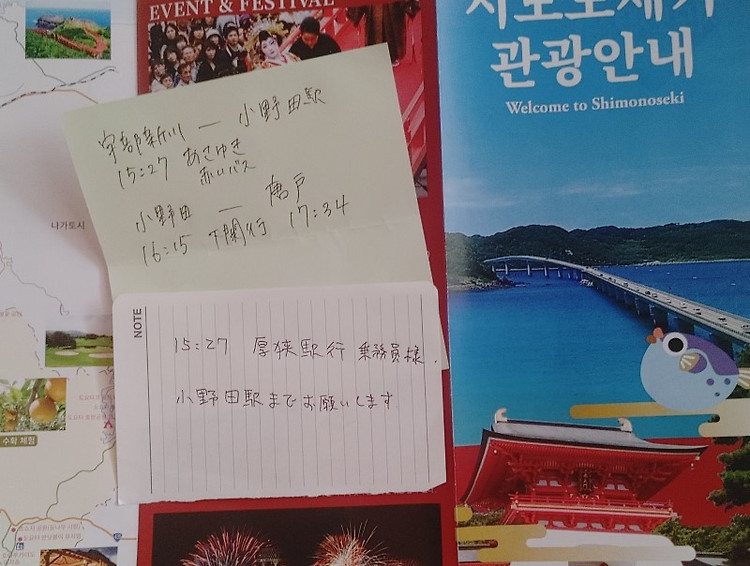 EVENT & FESTIVAL
관광안내
Welcome to Shimonoseki
宇部新川 — 小野田駅
15:27 あさゆき
赤いバス
小野田 — 唐戸
16:15 下関行 17:34
나가토시
NOTE
15:27 厚狭駅行 乗務員様.
小野田駅までお願いします.
수확 체험